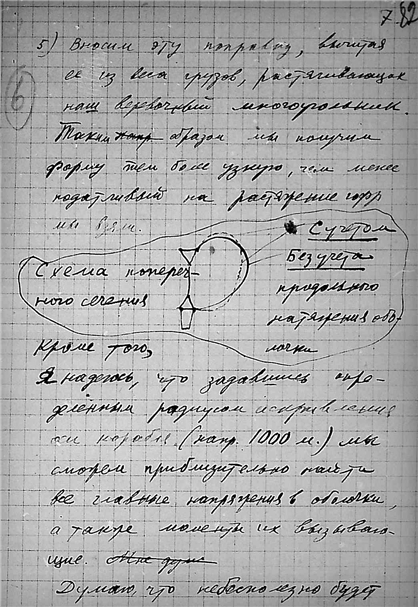 7. 82
6
5) Вносим эту поправку, вычитая
ее из веса грузов, растягивающих
наш веревочный многоугольник.
Таким образом мы получим
форму тем более узкую, чем менее
податливый на растяжение гофр
мы взяли.
С учетом
Без учета
продольного
натяжения обо-
лочки
Схема попереч-
ного сечения
Кроме того,
Я надеюсь, что задавшись опре-
делённым радиусом искривления
оси корабля (напр. 1000 м.) мы
сможем приблизительно найти
все главные напряжения в оболочки,
а также моменты их вызываю-
щие. Мне дума
Думаю, что небесполезно будет